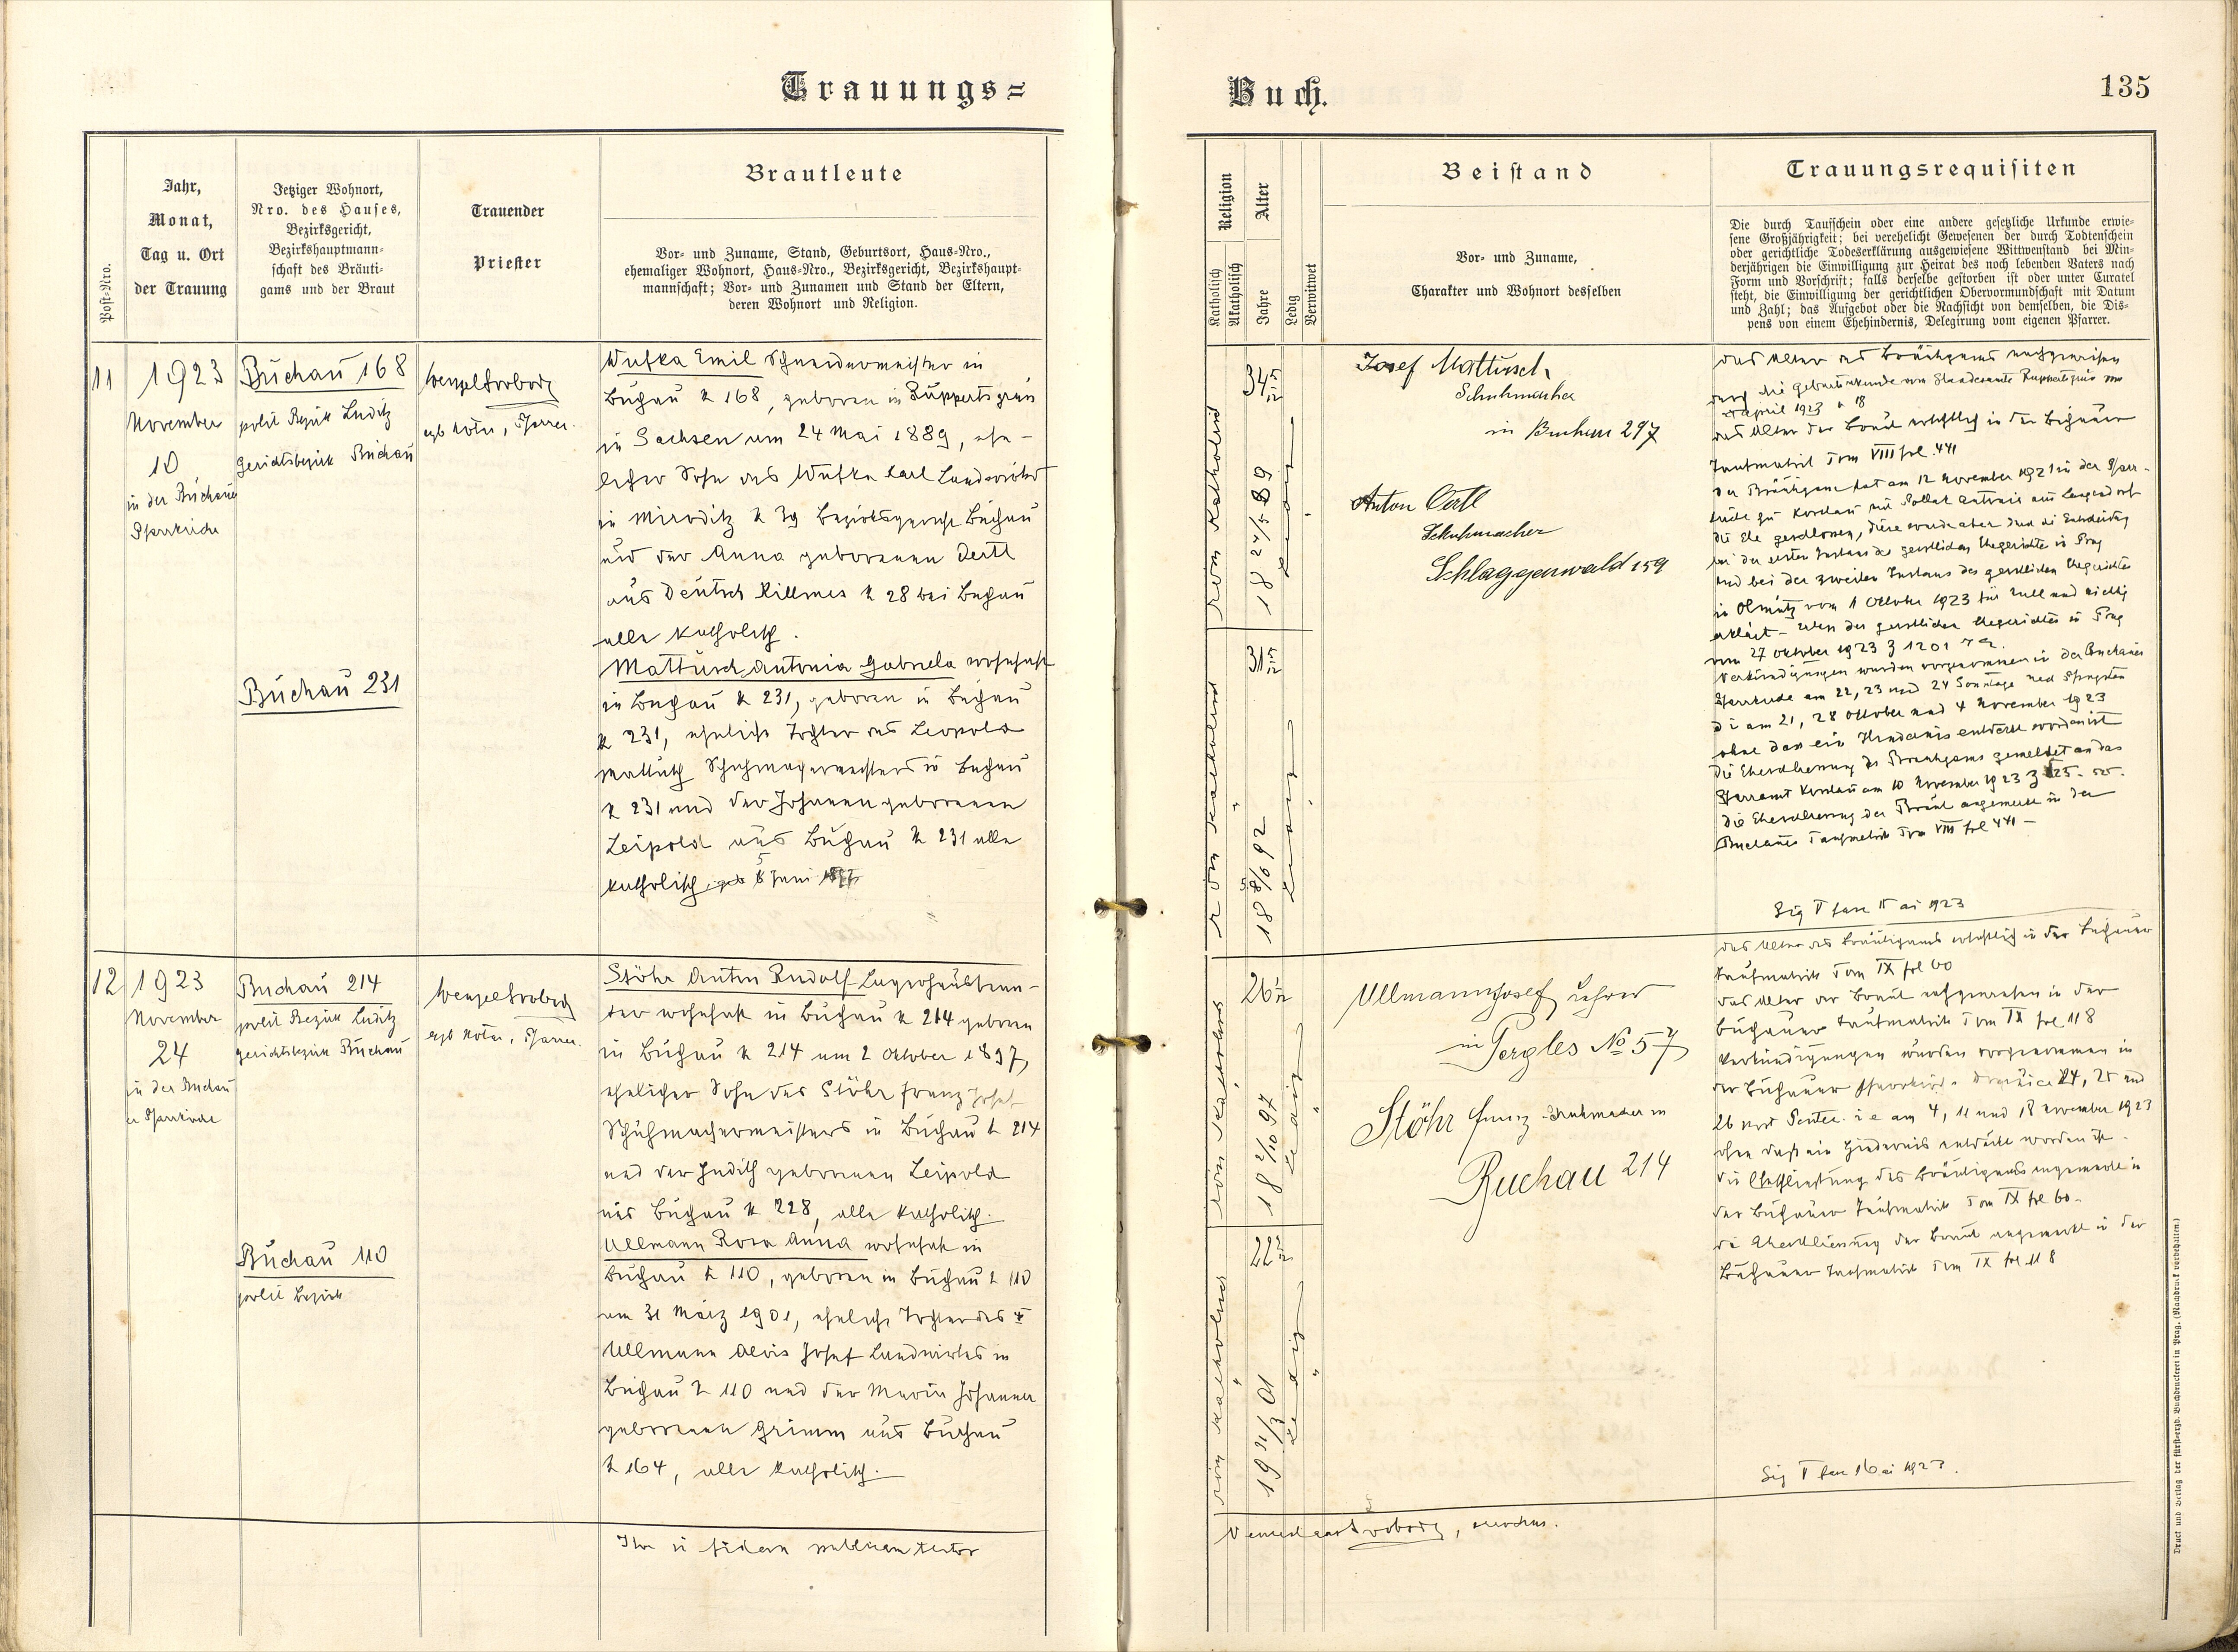 Trauungs=
Post-Nro.
Jahr,
Monat,
Tag u. Ort
der Trauung
Jetziger Wohnort,
Nro. des Hauses,
Bezirksgericht,
Bezirkshauptmann=
schaft des Bräuti=
gams und der Braut
Trauender
Priester
Brautleute
Vor= und Zuname, Stand, Geburtsort, Haus=Nro.,
ehemaliger Wohnort, Haus=Nro., Bezirksgericht, Bezirkshaupt=
mannschaft; Vor= und Zunamen und Stand der Eltern,
deren Wohnort und Religion.
11
1923
November
10
in der Buchauer
Pfarrkirche
Buchau 168
polit Bezirk Luditz
Gerichtsbezirk Buchau
Buchau 231
Wenzel Svoboda
Pfarrer.
Wutka Emil Schneidermeister in
Buchau № 168, geboren in Ruppertsgrün
in Sachsen am 24 Mai 1889, ehe-
licher Sohn des Wutka Karl Landwirths
in Miroditz № 39 Bezirksgericht Buchau
und der Anna geborenen Oertl
aus Deutsch Killmes № 28 bei Buchau
alle katholisch.
Mattusch Antonia Gabriela wohnhaft
in Buchau № 231, geboren in Buchau
№ 231, eheliche Tochter des Leopold
Mattusch Schuhmachermeisters in Buchau
№ 231 und der Johanna geborenen
Leipold aus Buchau № 231 alle
katholisch Juni
12
1923
November
24
in der Buchau
er Pfarrkirche
Buchau 214
polit Bezirk Luditz
Gerichtsbezirk Buchau
Buchau 110
polit Bezirk
Wenzel Svoboda
Pfarrer.
Stöhr Anton Rudolf Lagerhausbeam-
ter wohnhaft in Buchau № 214 geboren
in Buchau № 214 am 2 Oktober 1897,
ehelicher Sohn des Stöhr Franz Josef
Schuhmachermeisters in Buchau № 214
und der Judith geborenen Leipold
aus Buchau № 228, alle katholisch.
Ullmann Rosa Anna wohnhaft in
Buchau № 110, geboren in Buchau № 110
am 31 März 1901, eheliche Tochter des
Ullmann Alois Josef Landwirtes in
Buchau № 110 und der Maria Johanna
geborenen Grimm aus Buchau
№ 164, alle katholisch.
in fidem publicam testor
Buch.
135
Religion
Katholisch
Akatholisch
Alter
Jahre
Ledig
Verwitwet
Beistand
Vor= und Zuname,
Charakter und Wohnort desselben
Trauungsrequisiten
Die durch Taufschein oder eine andere gesetzliche Urkunde erwie=
sene Großjährigkeit; bei verehelicht Gewesenen der durch Todtenschein
oder gerichtliche Todeserklärung ausgewiesene Wittwenstand bei Min=
derjährigen die Einwilligung zur Heirat des noch lebenden Vaters nach
Form und Vorschrift; falls derselbe gestorben ist oder unter Curatel
steht, die Einwilligung der gerichtlichen Obervormundschaft mit Datum
und Zahl; das Aufgebot oder die Nachsicht von demselben, die Dis=
pens von einem Ehehindernis, Delegirung vom eigenen Pfarrer.
röm katholisch
34 5/12
18 24/5 89
Ledig
röm katholisch
31 5/12
Ledig
Josef Mattusch
Schuhmacher
in Buchau 297
Anton Oertl
Schuhmacher
Schlaggenwald 159
das Alter des Bräutigams nachgewiesen
durch die Geburtsurkunde vom Standesamte Ruppertsgrün vom
April 1923 № 18
das Alter der Braut ersichtlich in der Buchauer
Taufmatrik Tom VIII fol. 441
der Bräutigam hat am 12 November 1921 in der Pfarr-
die Ehe geschlossen, diese wurde aber durch die Entscheidung
bei der ersten Instanz des geistlichen Ehegerichtes in Prag
und bei der zweiten Instanz des geistlichen Ehegerichtes
in Olmütz vom 1 Oktober 1923 für null und nichtig
erklärt - des geistlichen Ehegerichtes in Prag
vom 27 Oktober 1923 Z 1201
Verkündigungen wurden vorgenommen in der Buchauer
Pfarrkirche am 22, 23 und 24 Sonntage nach Pfingsten
d i am 21, 28 Oktober und 4 November 1923
ohne dass ein Hindernis entdeckt worden ist
die Eheschliessung des Bräutigams gemeldet an das
Pfarramt am 10 November 1923 Z
die Eheschliessung der Braut angemerkt in der
Buchauer Taufmatrik Tom VIII fol 441 -
1923
röm katholisch
26 1/12
18 2/10 97
Ledig
röm katholisch
19 31/3 01
Ledig
Ullmann Josef Lehrer
in Pergles № 57
Stöhr Franz Schuhmacher in
Buchau 214
das Alter des Bräutigams ersichtlich in der Buchauer
Taufmatrik Tom IX fol 60
das Alter der Braut nachgewiesen in der
Buchauer Taufmatrik Tom IX fol 118
Verkündigungen wurden vorgenommen in
der Buchauer Pfarrkirche 24, 25 und
26 post Pentec. i e am 4, 11 und 18 November 1923
ohne dass ein Hindernis entdeckt worden ist.
die Eheschliessung des Bräutigams angemerkt in
der Buchauer Taufmatrik Tom IX fol 60.
die Eheschliessung der Braut angemerkt in der
Buchauer Taufmatrik Tom IX fol 118
1923.
Svoboda, parochus.
Druck und Verlag der fürst=erzb. Buchdruckerei in Prag. (Nachdruck vorbehalten.)